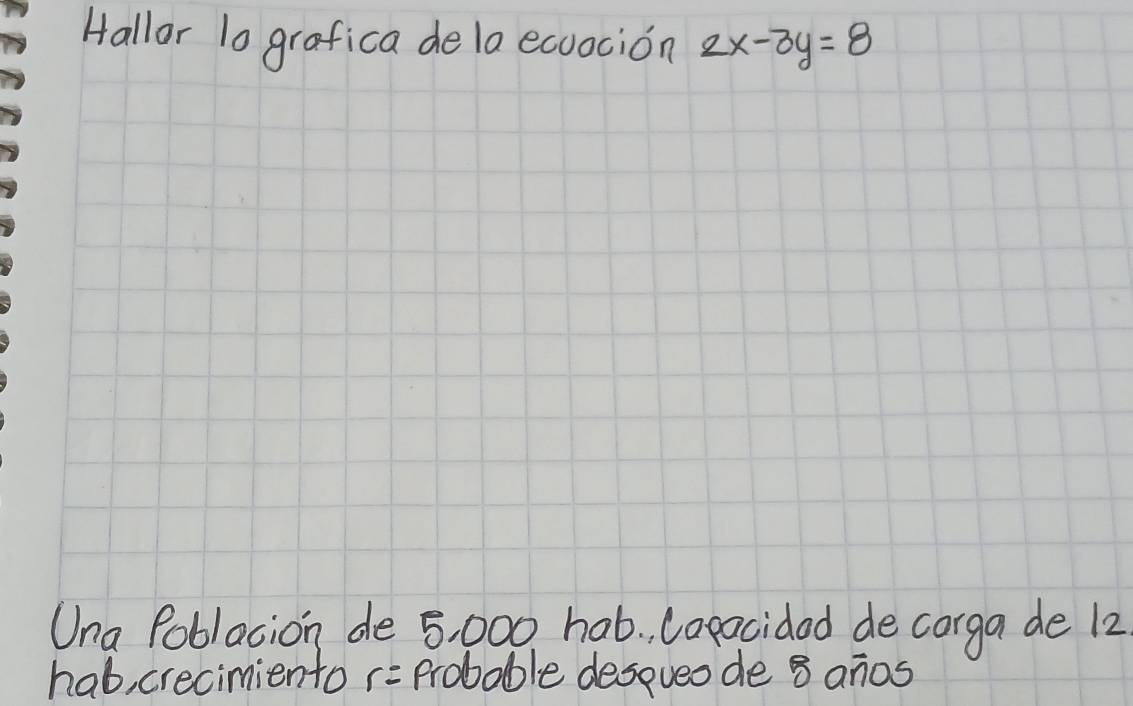 Hallar la grafica de la ecuación 2x-3y=8
Una Poblacion de 5.000 hab., Capacidad de carga de 12.
hab, crecimiento r= Probable de de 8 años